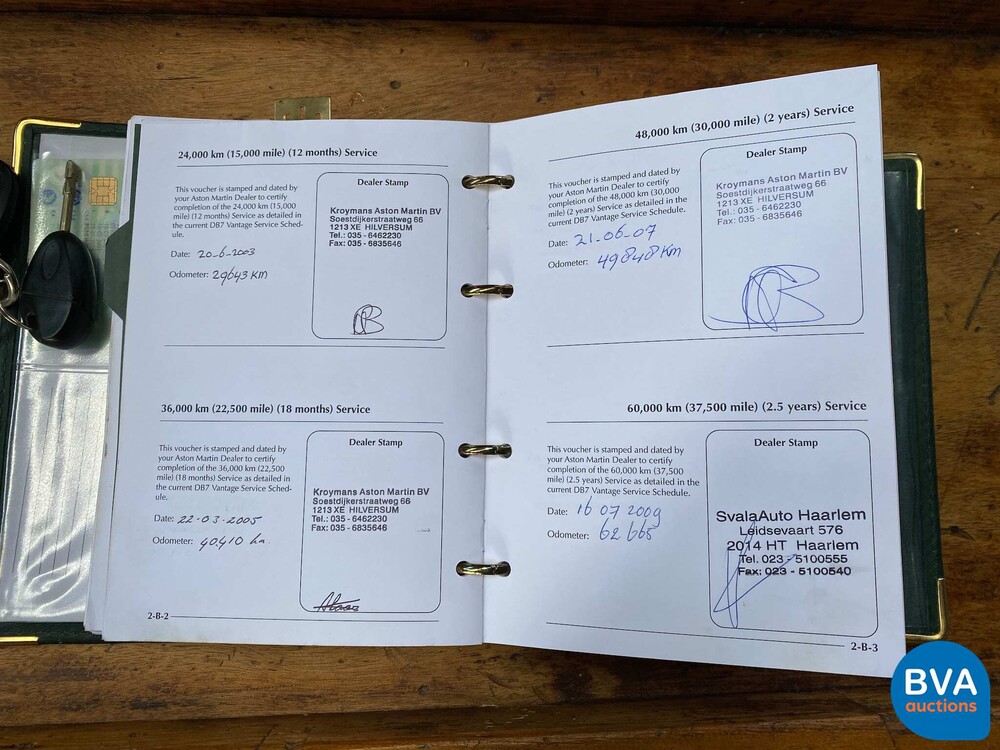 24,000 km (15,000 mile) (12 months) Service
This voucher is stamped and dated by
your Aston Martin Dealer to certify
completion of the 24,000 km (15,000
mile) (12 months) Service as detailed in
the current DB7 Vantage Service Sched-
ule.
Date: 20-6-2003
Odometer: 29643 KM
Dealer Stamp
Kroymans Aston Martin BV
Soestdijkerstraatweg 66
1213 XE HILVERSUM
Tel.: 035 - 6462230
Fax: 035 - 6835646
36,000 km (22,500 mile) (18 months) Service
This voucher is stamped and dated by
your Aston Martin Dealer to certify
completion of the 36,000 km (22,500
mile) (18 months) Service as detailed in
the current DB7 Vantage Service Sched-
ule.
Date: 22-03-2005
Odometer: 40410
Dealer Stamp
Kroymans Aston Martin BV
Soestdijkerstraatweg 66
1213 XE HILVERSUM
Tel.: 035 - 6462230
Fax: 035 - 6835646
2-B-2
48,000 km (30,000 mile) (2 years) Service
This voucher is stamped and dated by
your Aston Martin Dealer to certify
completion of the 48,000 km (30,000
mile) (2 years) Service as detailed in the
current DB7 Vantage Service Schedule.
Date: 21-06-07
Odometer: 49848 Km
Dealer Stamp
Kroymans Aston Martin BV
Soestdijkerstraatweg 66
1213 XE HILVERSUM
Tel.: 035 - 6462230
Fax: 035 - 6835646
60,000 km (37,500 mile) (2.5 years) Service
This voucher is stamped and dated by
your Aston Martin Dealer to certify
completion of the 60,000 km (37,500
mile) (2.5 years) Service as detailed in the
current DB7 Vantage Service Schedule.
Date: 16 07 2009
Odometer: 62 665
Dealer Stamp
SvalaAuto Haarlem
Leidsevaart 576
2014 HT Haarlem
Tel. 023 - 5100555
Fax: 023 - 5100540
2-B-3
BVA
auctions